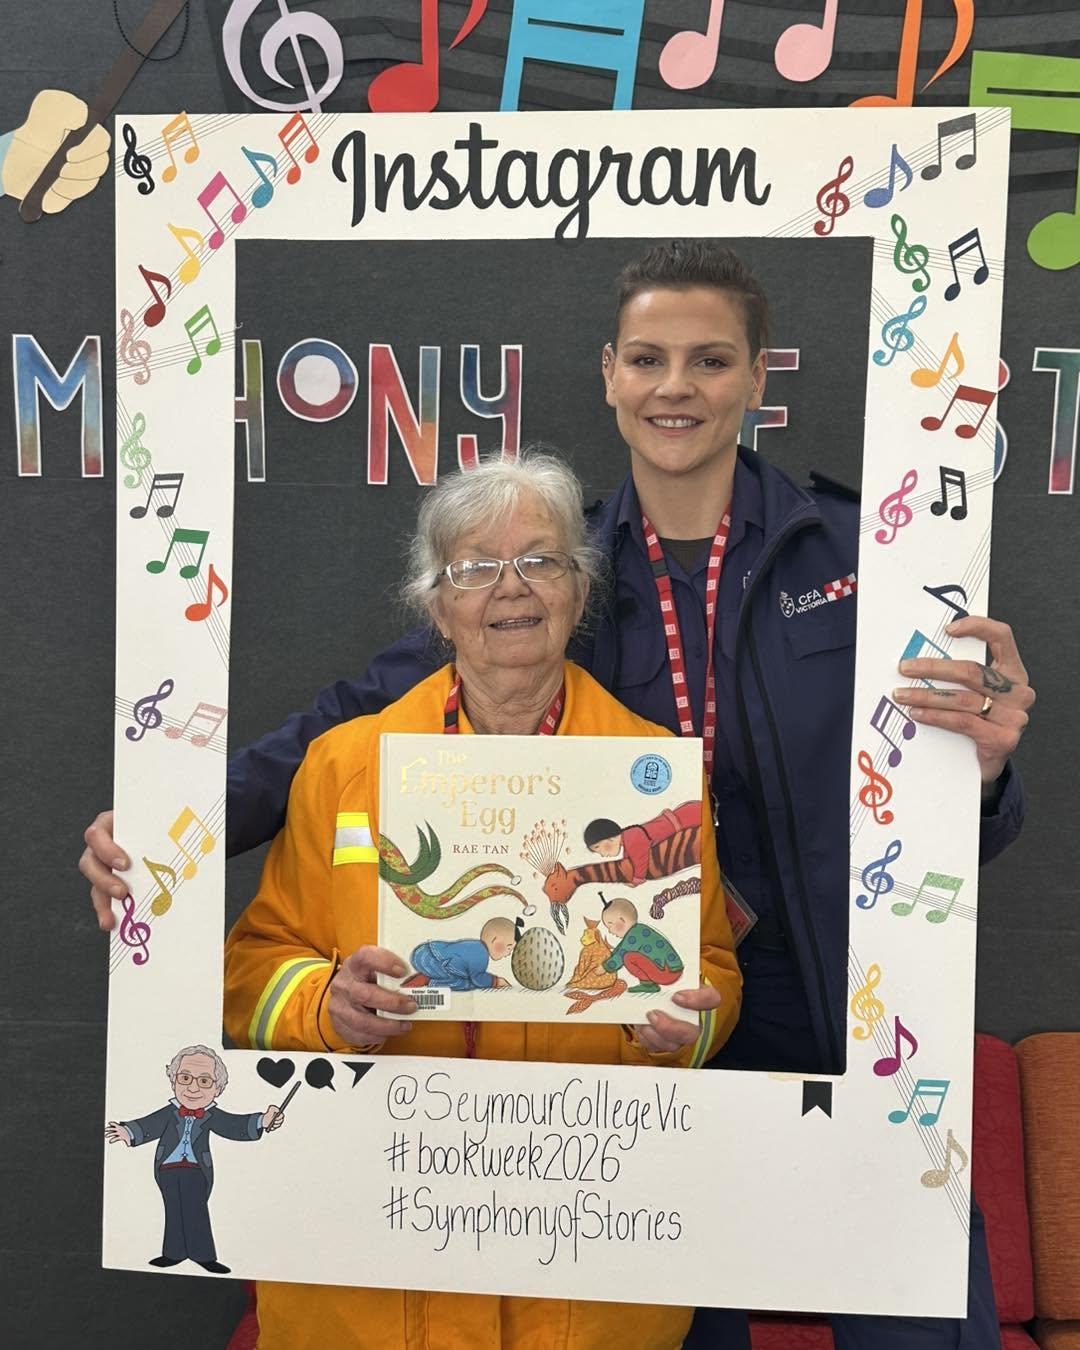 Instagram
M HONY F ST
CFA
VICTORIA
The
Emperor's
Egg
RAE TAN
@SeymourCollegeVic
#bookweek2026
#SymphonyofStories